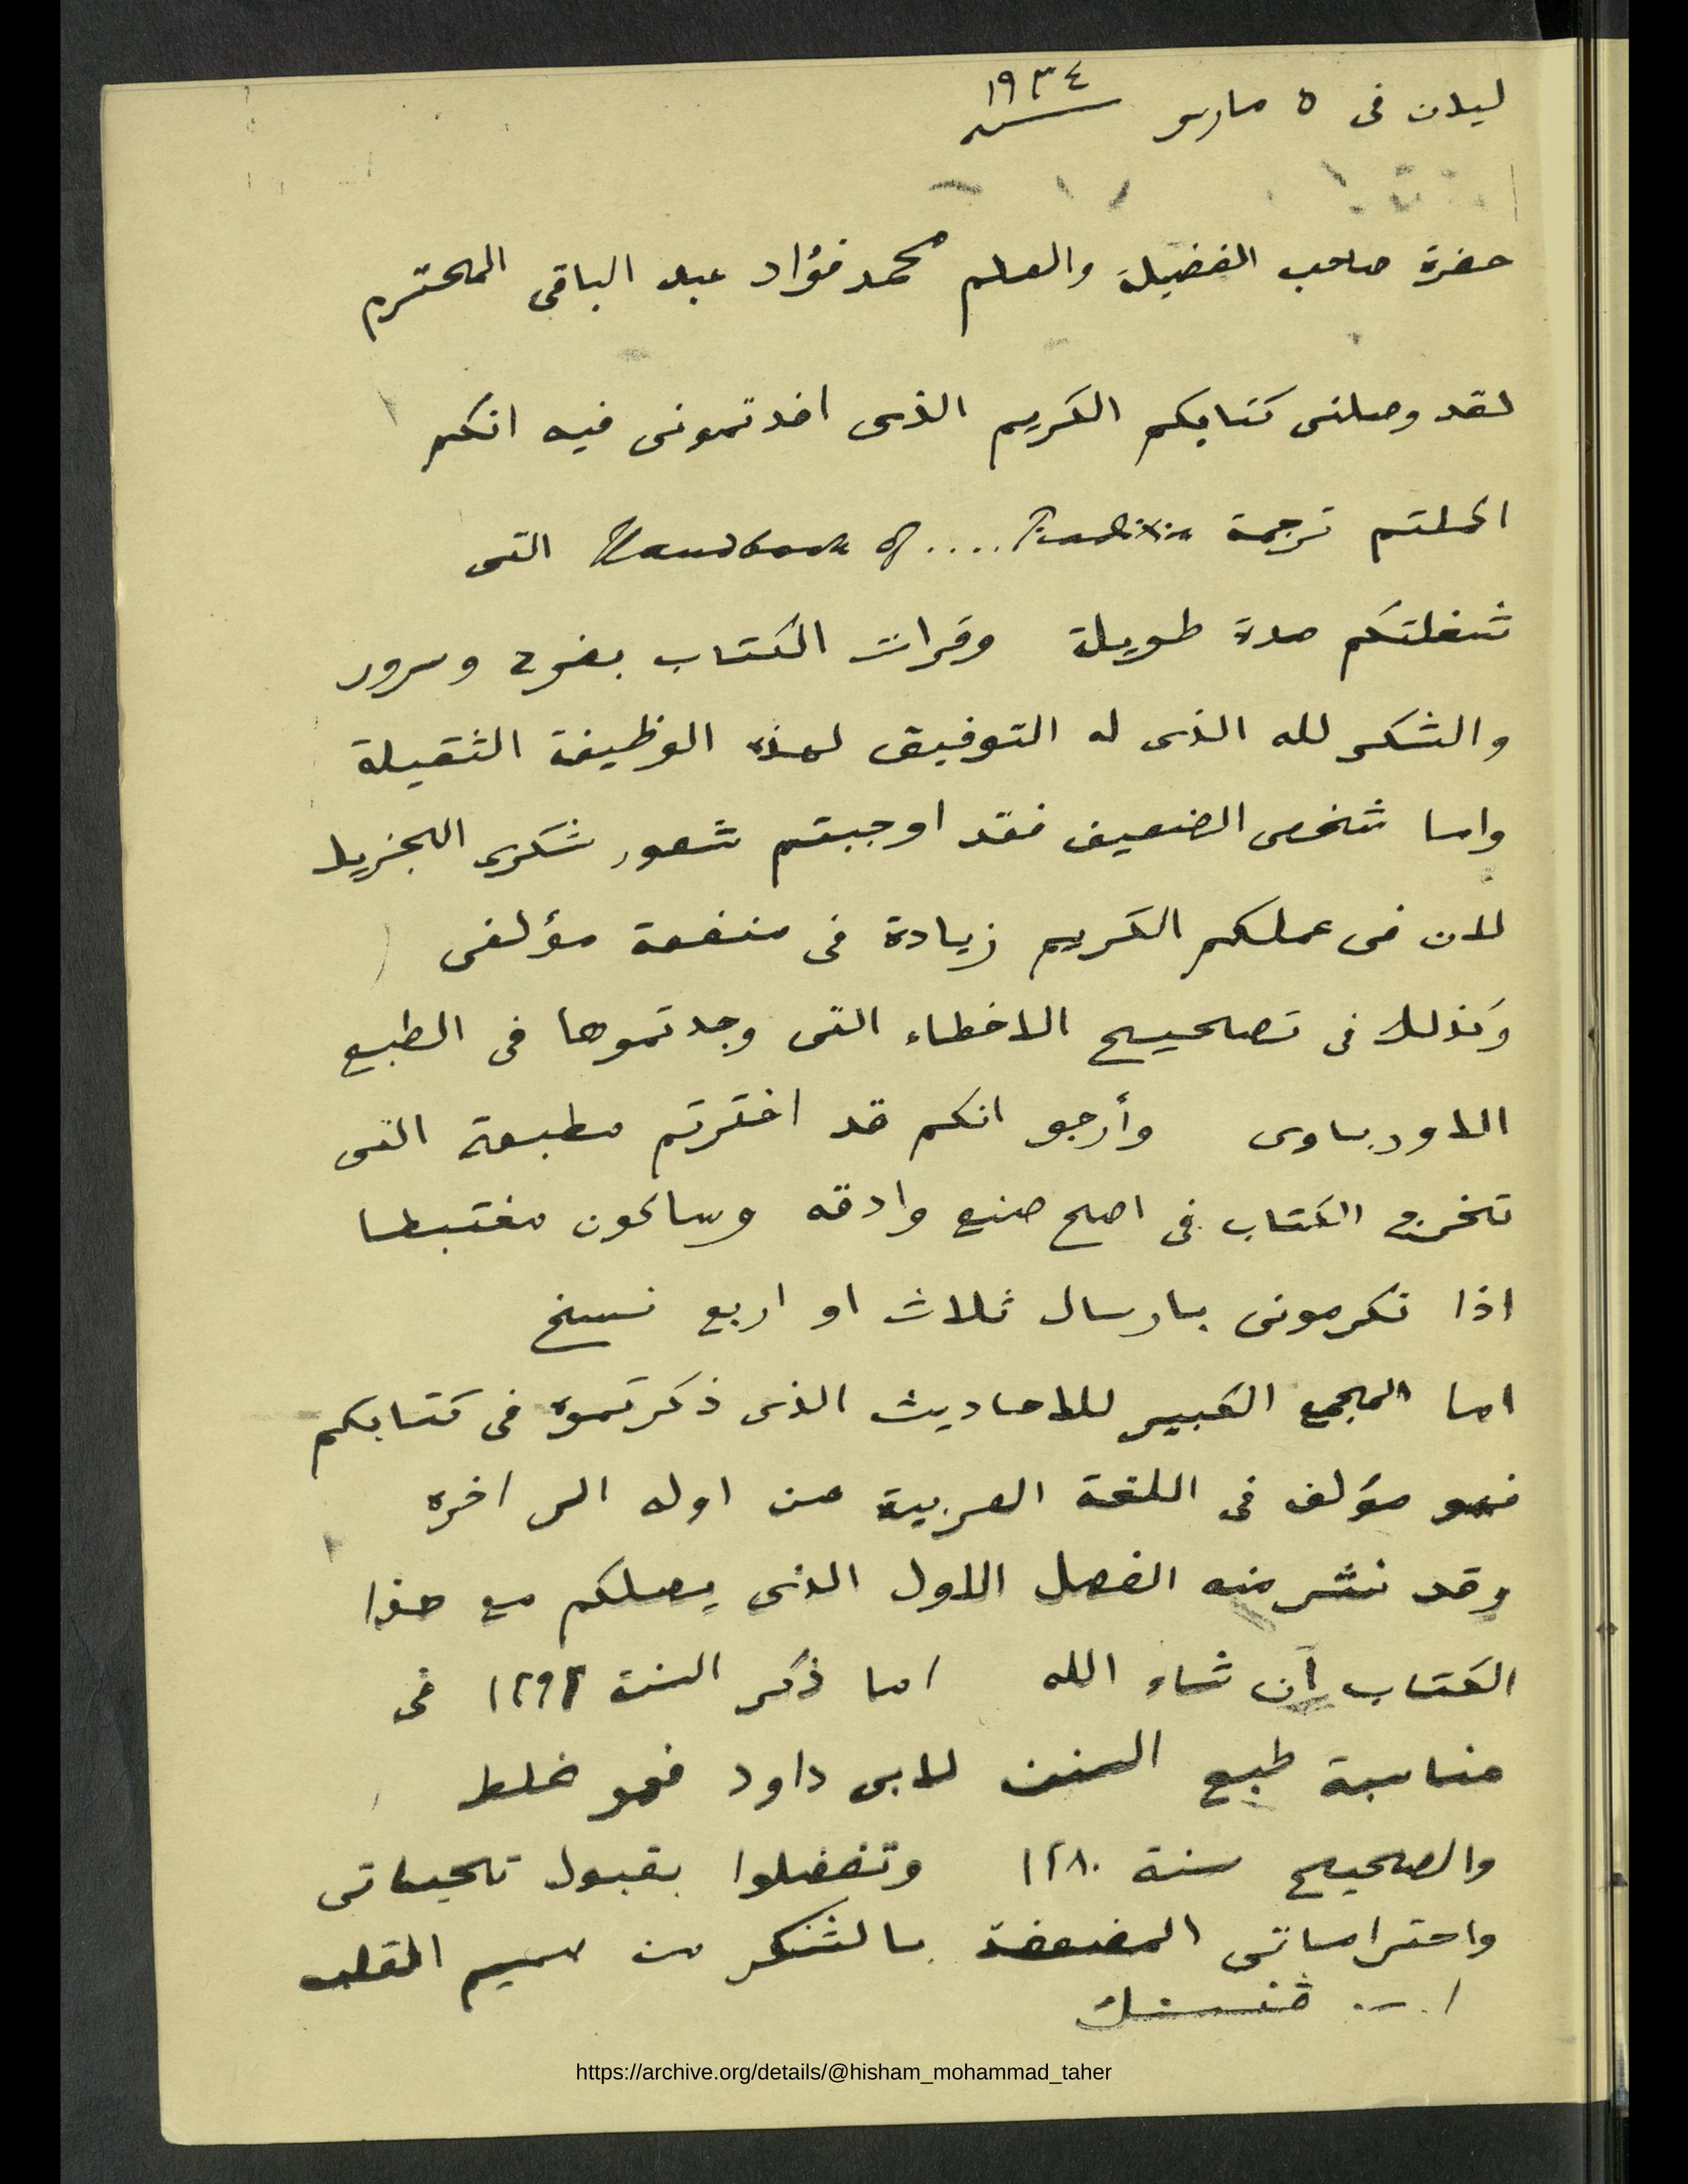 ليدن فى ٥ مارس سنة ١٩٣٤
حضرة صاحب الفضيلة والعلم محمد فؤاد عبد الباقى المحترم
لقد وصلنى كتابكم الكريم الذى اخدتمونى فيه انكم
اكملتم ترجمة Handbook of .... Tradition التى
شغلتكم مدة طويلة وقرات الكتاب بفرح وسرور
والشكر لله الذى له التوفيق لهذه الوظيفة الثقيلة
واما شخصى الضعيف فقد اوجبتم شعور شكرى الجزيل
لان فى عملكم الكريم زيادة فى منفعة مؤلفى
وكذلك فى تصحيح الاخطاء التى وجدتموها فى الطبع
الاورباوى وأرجو انكم قد اخترتم مطبعة التى
تخرج الكتاب فى اصح صنع وادقه وساكون مغتبطا
اذا تكرمونى بارسال ثلاث او اربع نسخ
اما المجمع الكبير للاحاديث الذى ذكرتموه فى كتابكم
فهو مؤلف فى اللغة العربية من اوله الى اخره
وقد نشر منه الفصل الاول الذى يصلكم مع هذا
الكتاب ان شاء الله اما ذكر السنة فى
مناسبة طبع السنن لابى داود فهو غلط
والصحيح سنة ١٢٨٠ وتفضلوا بقبول تحياتى
واحتراماتى بالشكر من صميم القلب
ا. ى. فنسنك
https://archive.org/details/@hisham_mohammad_taher